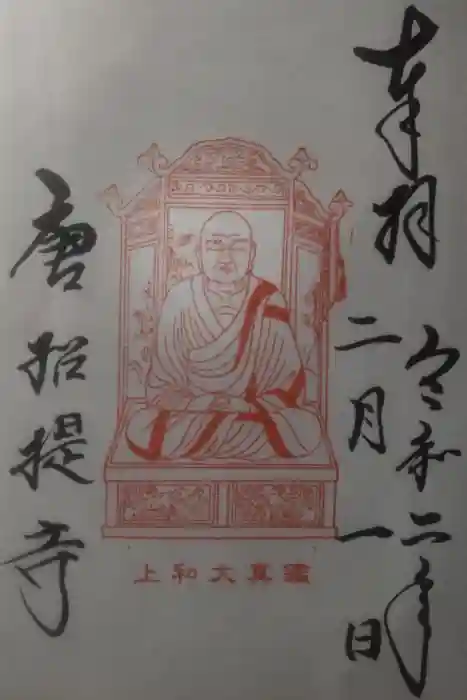 奉拝
令和二年
二月一日
唐招提寺
上和大真鑑